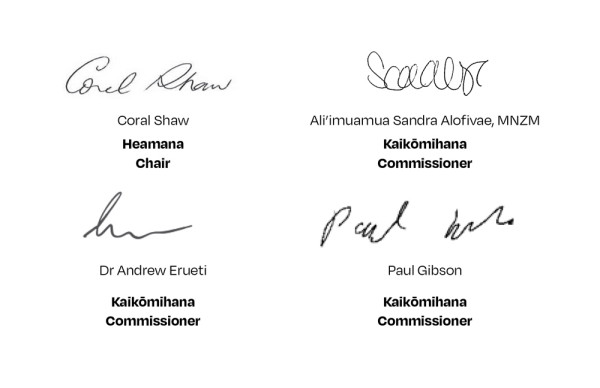 Coral Shaw
Coral Shaw
Heamana
Chair
Ali'imuamua Sandra Alofivae, MNZM
Kaikōmihana
Commissioner
Dr Andrew Erueti
Kaikōmihana
Commissioner
Paul
Paul Gibson
Kaikōmihana
Commissioner